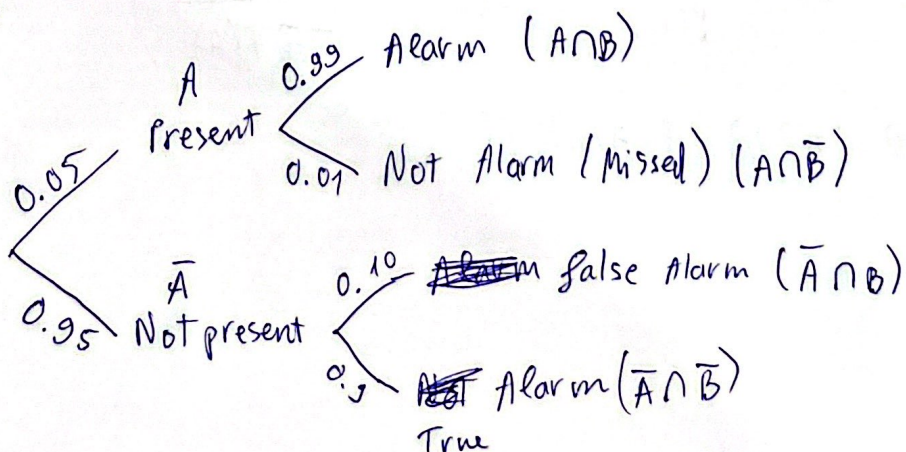 A
Present
0.05
0.99
Alarm (A∩B)
0.01
Not Alarm (Missed) (A∩B̅)
0.95
A̅
Not present
0.10
false Alarm (A̅∩B)
0.9
Alarm (A̅∩B̅)
True